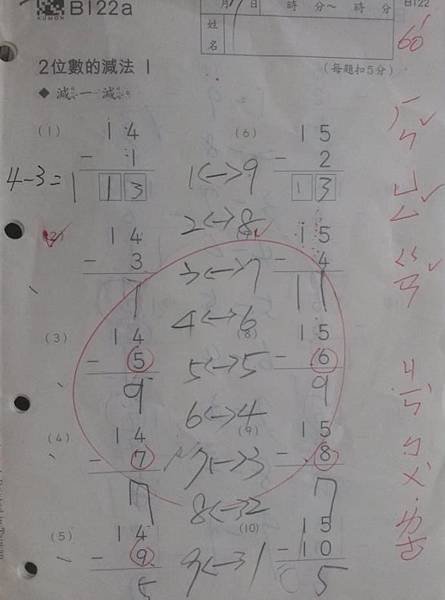 KUMON B122a
月 日 時 分～ 時 分
B122
姓名
60
2位數的減法 1
(每題扣5分)
◆ 減一減
(1) 14 - 1 = 13
4-3=1
1↔9
(6) 15 - 2 = 13
2↔8
(2) 14 - 3
15 - 4 = 11
3↔7
4↔6
(3) 14 - 5 = 9
5↔5
(8) 15 - 6 = 9
6↔4
(4) 14 - 7 = 7
7↔3
(9) 15 - 8 = 7
8↔2
(5) 14 - 9 = 5
9↔1
(10) 15 - 10 = 5